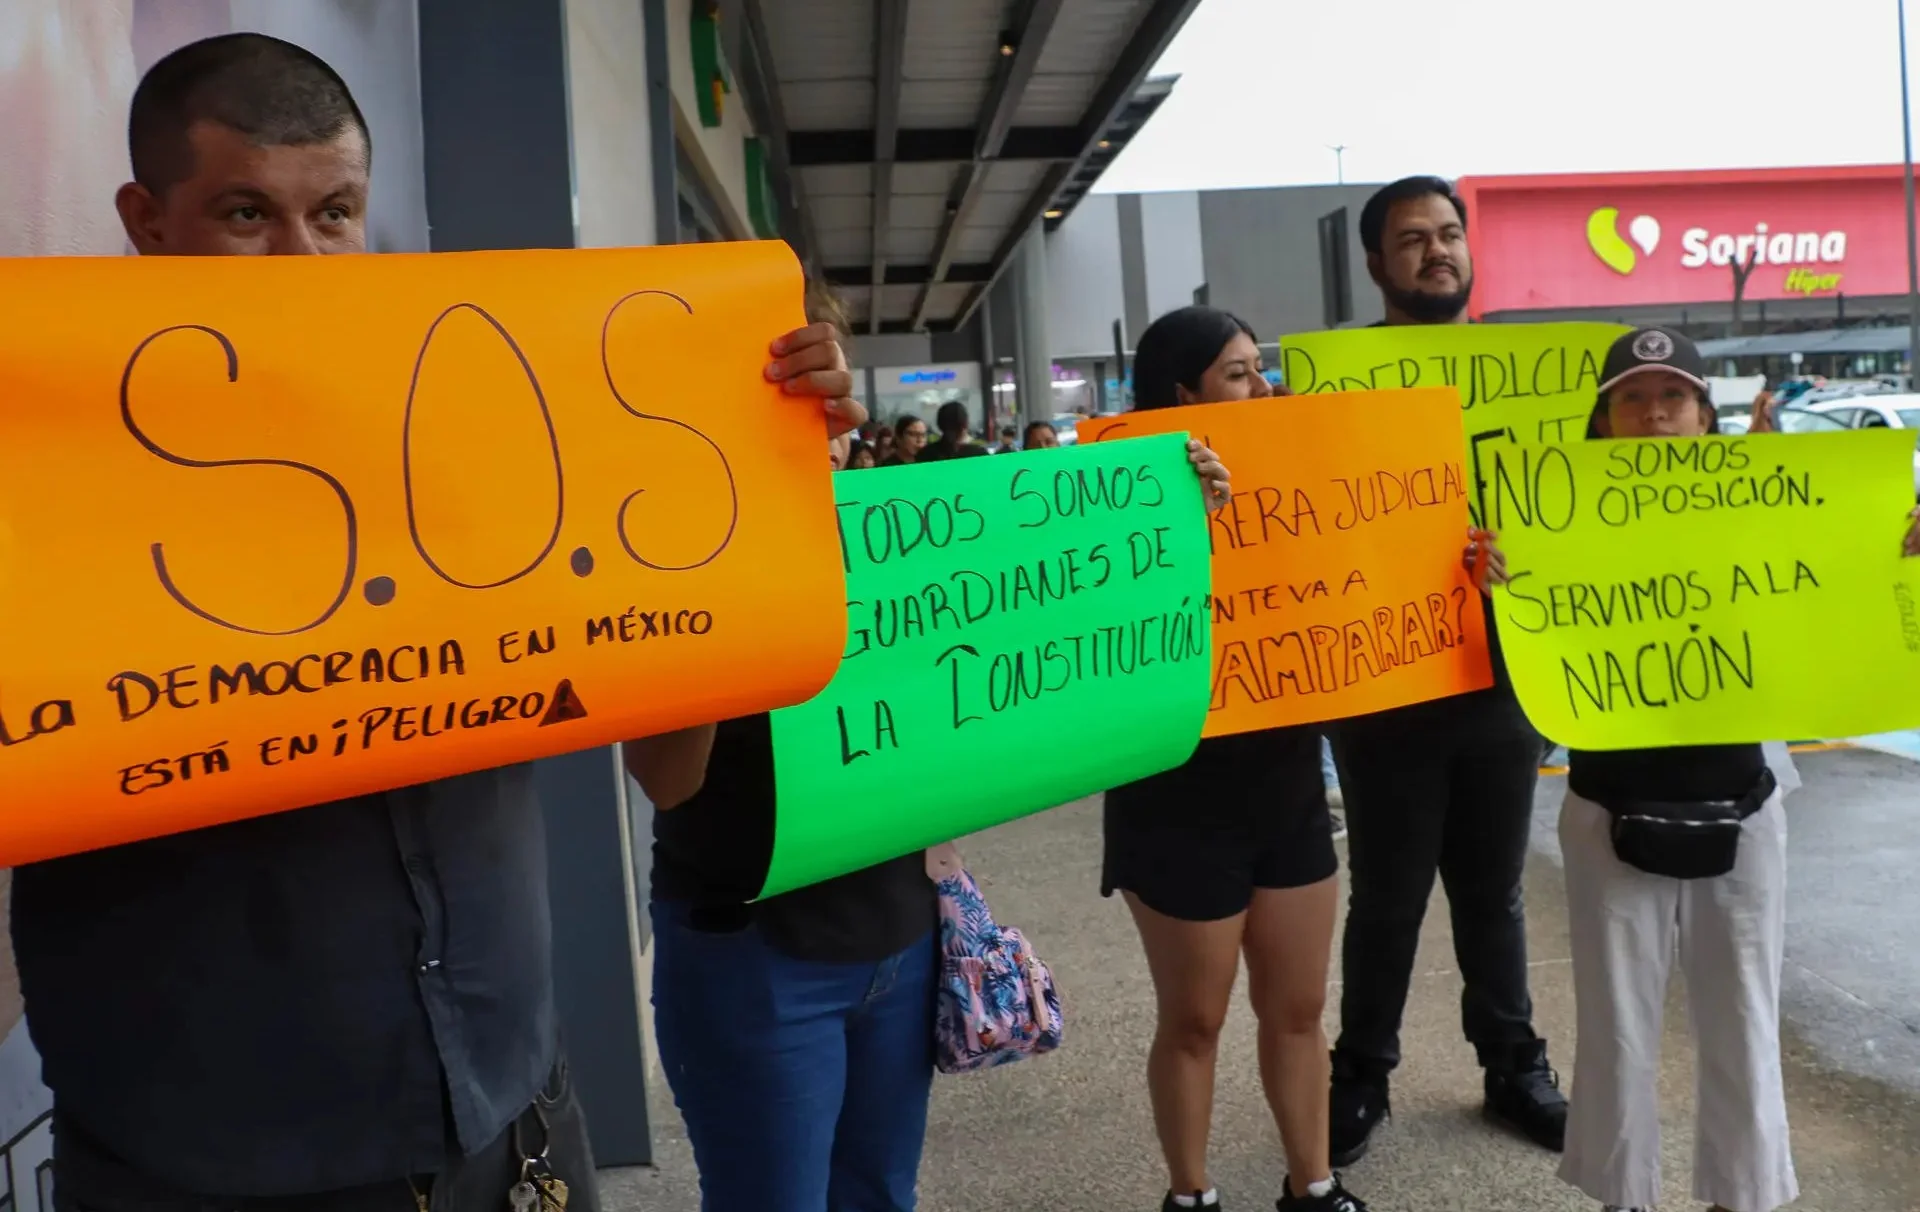 S.O.S
La DEMOCRACIA EN MÉXICO
ESTÁ EN ¡PELIGRO
TODOS SOMOS
GUARDIANES DE
LA CONSTITUCIÓN
JUDICIAL
TE VA A
AMPARAR?
PODER JUDICIAL
NO SOMOS
OPOSICIÓN.
SERVIMOS A LA
NACIÓN
Soriana
Híper